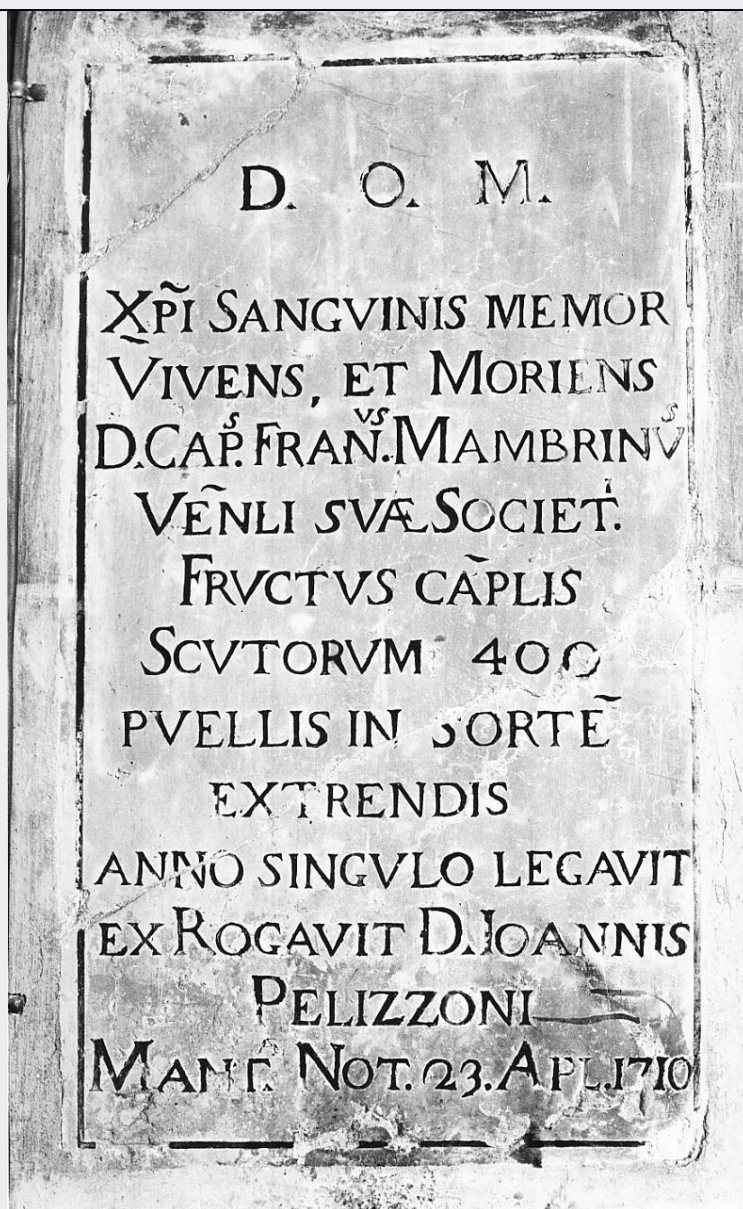 D. O. M.
XP̃I SANGVINIS MEMOR
VIVENS, ET MORIENS
D. CAP.S FRAN.VS MAMBRINVS
VEÑLI SVÆ SOCIET.
FRVCTVS CAP̃LIS
SCVTORVM 400
PVELLIS IN SORTẼ
EXTRENDIS
ANNO SINGVLO LEGAVIT
EX ROGAVIT D. IOANNIS
PELIZZONI
MANT. NOT. 23. APL. 1710